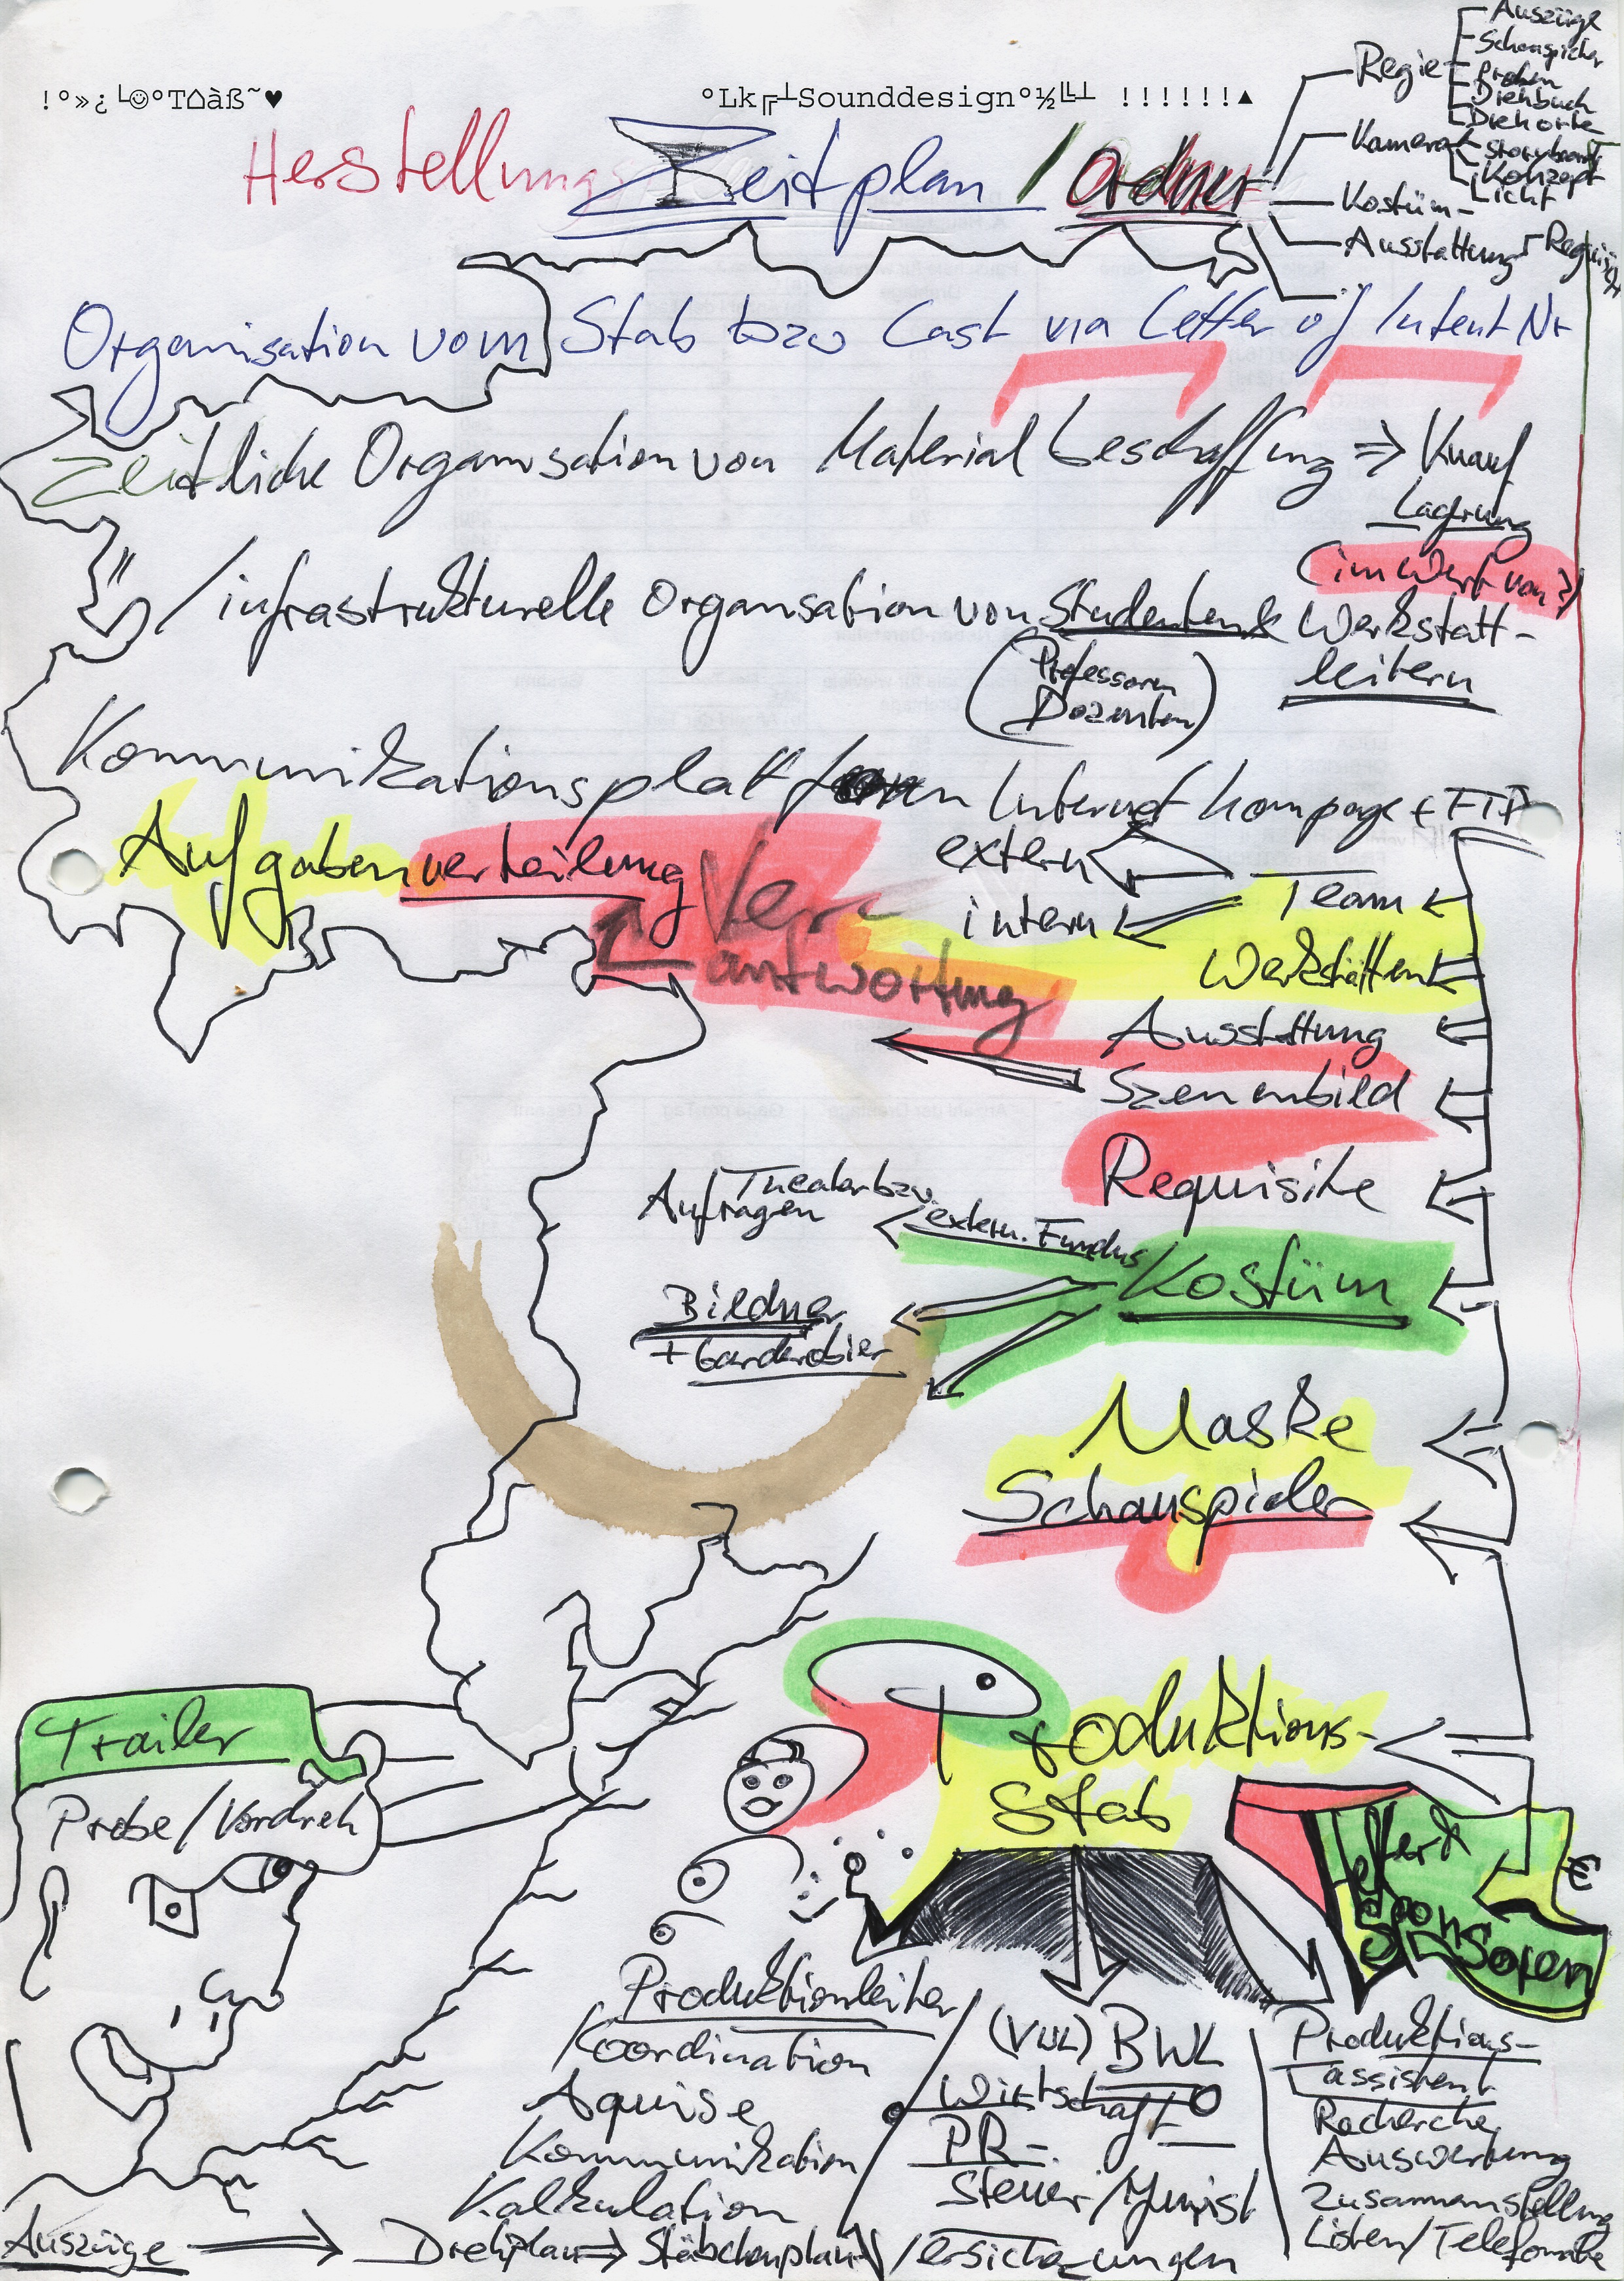 !°»¿└☺°T⌂àß˜♥
°Lk╔┴Sounddesign°½╚┴ !!!!!!▲
Herstellungs Zeitplan / Ordner
Regie
Auszüge
Schauspieler
Proben
Drehbuch
Drehorte
Kamera
Storyboard
Konzept
Licht
Kostüm-
Ausstattung
Organisation vom Stab bzw Cast via Letter of Intent Nr
Zeitliche Organisation von Material beschaffung ⇒ Knauf
Lagerung
(im Wert von?)
/ infrastrukturelle Organsation von Studenten & Werkstatt-
leitern
(Professoren
Dozenten)
Kommunikationsplattform Internet hompage + FTP
Aufgabenverteilung
Ver-
antwortung
extern
intern
Team
Werkstätten
Ausstattung
Szenenbild
Requisite
Theater bzw.
Aufragen
extern. Fundus
Kostüm
Bildner
+ Garderobier
Maske
Schauspieler
Produktions-
Stab
Trailer
Probe/Vordreh
€
Sponsoren
Produktionleiter
Koordination
Aquise
Kommunikation
Kalkulation
(VWL) BWL
Wirtschaft
PR-
Steuer/Jurist
Versicherungen
Produktions-
assistent
Recherche
Auswertung
Zusammenstellung
Listen/Telefonate
Auszüge ⇒ Drehplan ⇒ Stäbchenplan